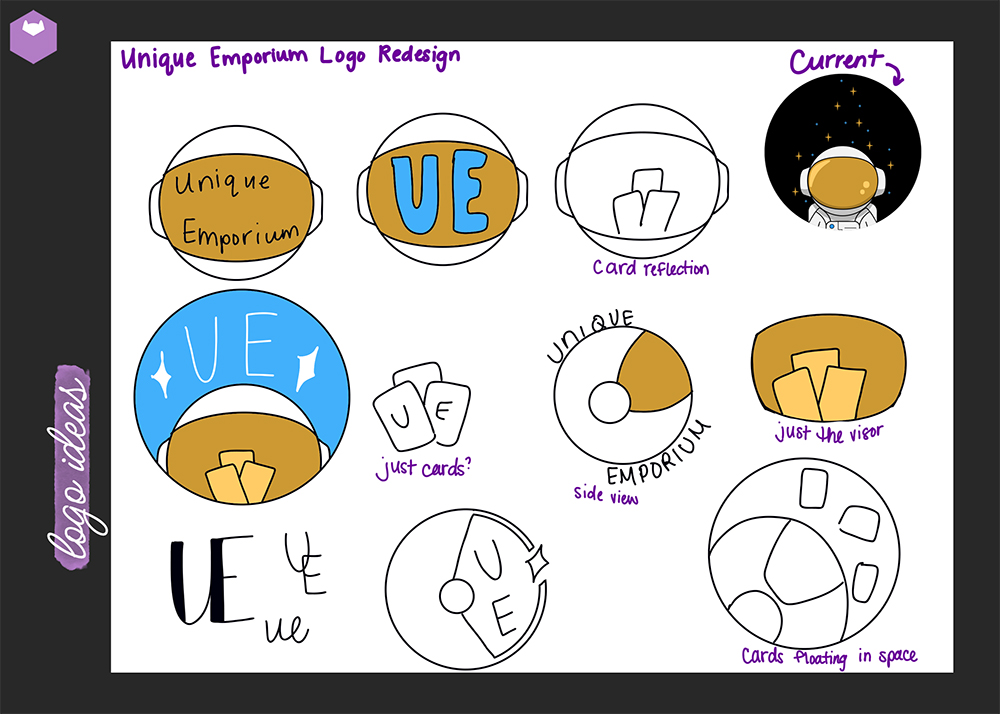 Unique Emporium Logo Redesign
Current
Unique
Emporium
UE
Card reflection
UE
U E
just cards?
UNIQUE
EMPORIUM
side view
just the visor
logo ideas
UE
UE
ue
U
E
Cards floating in space